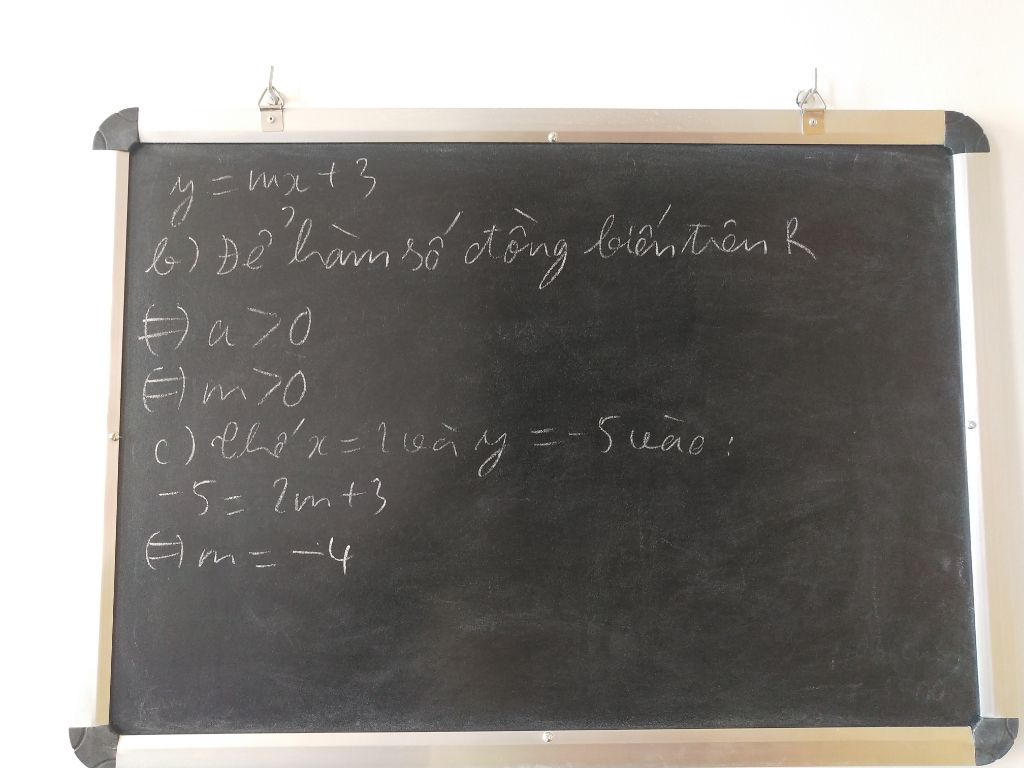 y = mx + 3
b) Để hàm số đồng biến trên R
⇔ a > 0
⇔ m > 0
c) Thế x = 2 và y = -5 vào :
-5 = 2m + 3
⇔ m = -4